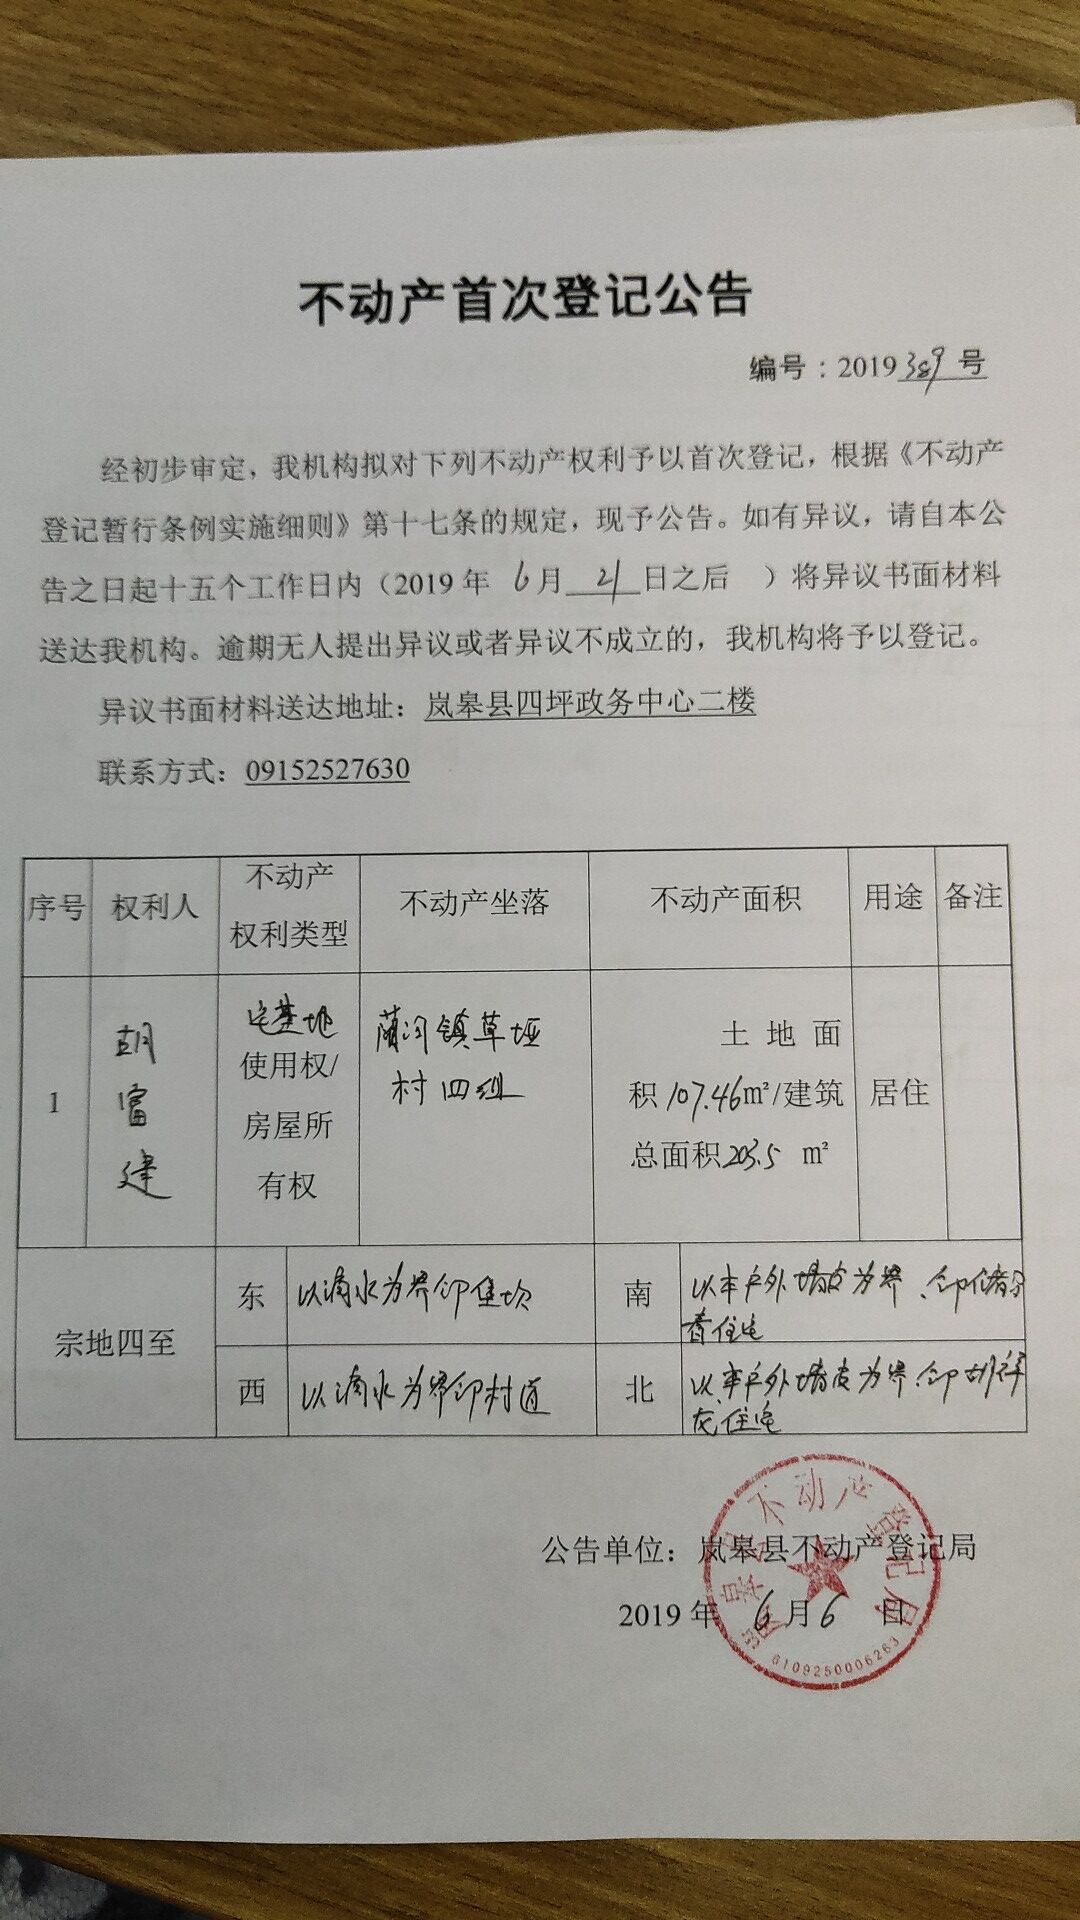 不动产首次登记公告
编号：2019 389 号
经初步审定，我机构拟对下列不动产权利予以首次登记，根据《不动产
登记暂行条例实施细则》第十七条的规定，现予公告。如有异议，请自本公
告之日起十五个工作日内（2019 年 6月 21 日之后 ）将异议书面材料
送达我机构。逾期无人提出异议或者异议不成立的，我机构将予以登记。
异议书面材料送达地址：岚皋县四坪政务中心二楼
联系方式：09152527630
序号 权利人 不动产 不动产坐落 不动产面积 用途 备注
权利类型
1
胡富建
宅基地
使用权/
房屋所
有权
蔺河镇草垭
村四组
土 地 面
积107.46㎡/建筑
总面积203.5 ㎡
居住
宗地四至
东 以滴水为界 坎
南 以本户外墙皮为界
住宅
西 以滴水为界 村道
北 以本户外墙皮为界 胡祥
龙住宅
公告单位：岚皋县不动产登记局
2019 年 6 月 6 日
岚皋县不动产登记局
6109250006263